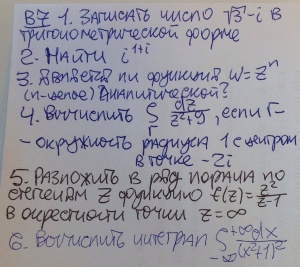 В7 1. Записать число √3-i в
тригонометрической форме
2. Найти i^{1+i}
3. Является ли функция w=z^n
(n-целое) аналитической?
4. Вычислить ∫_Γ dz/(z²+9), если Γ-
- окружность радиуса 1 с центром
в точке -2i
5. Разложить в ряд Лорана по
степеням z функцию f(z)=z²/(z-1)
в окрестности точки z=∞
6. Вычислить интеграл ∫_{-∞}^{+∞} dx/(x²+1)²